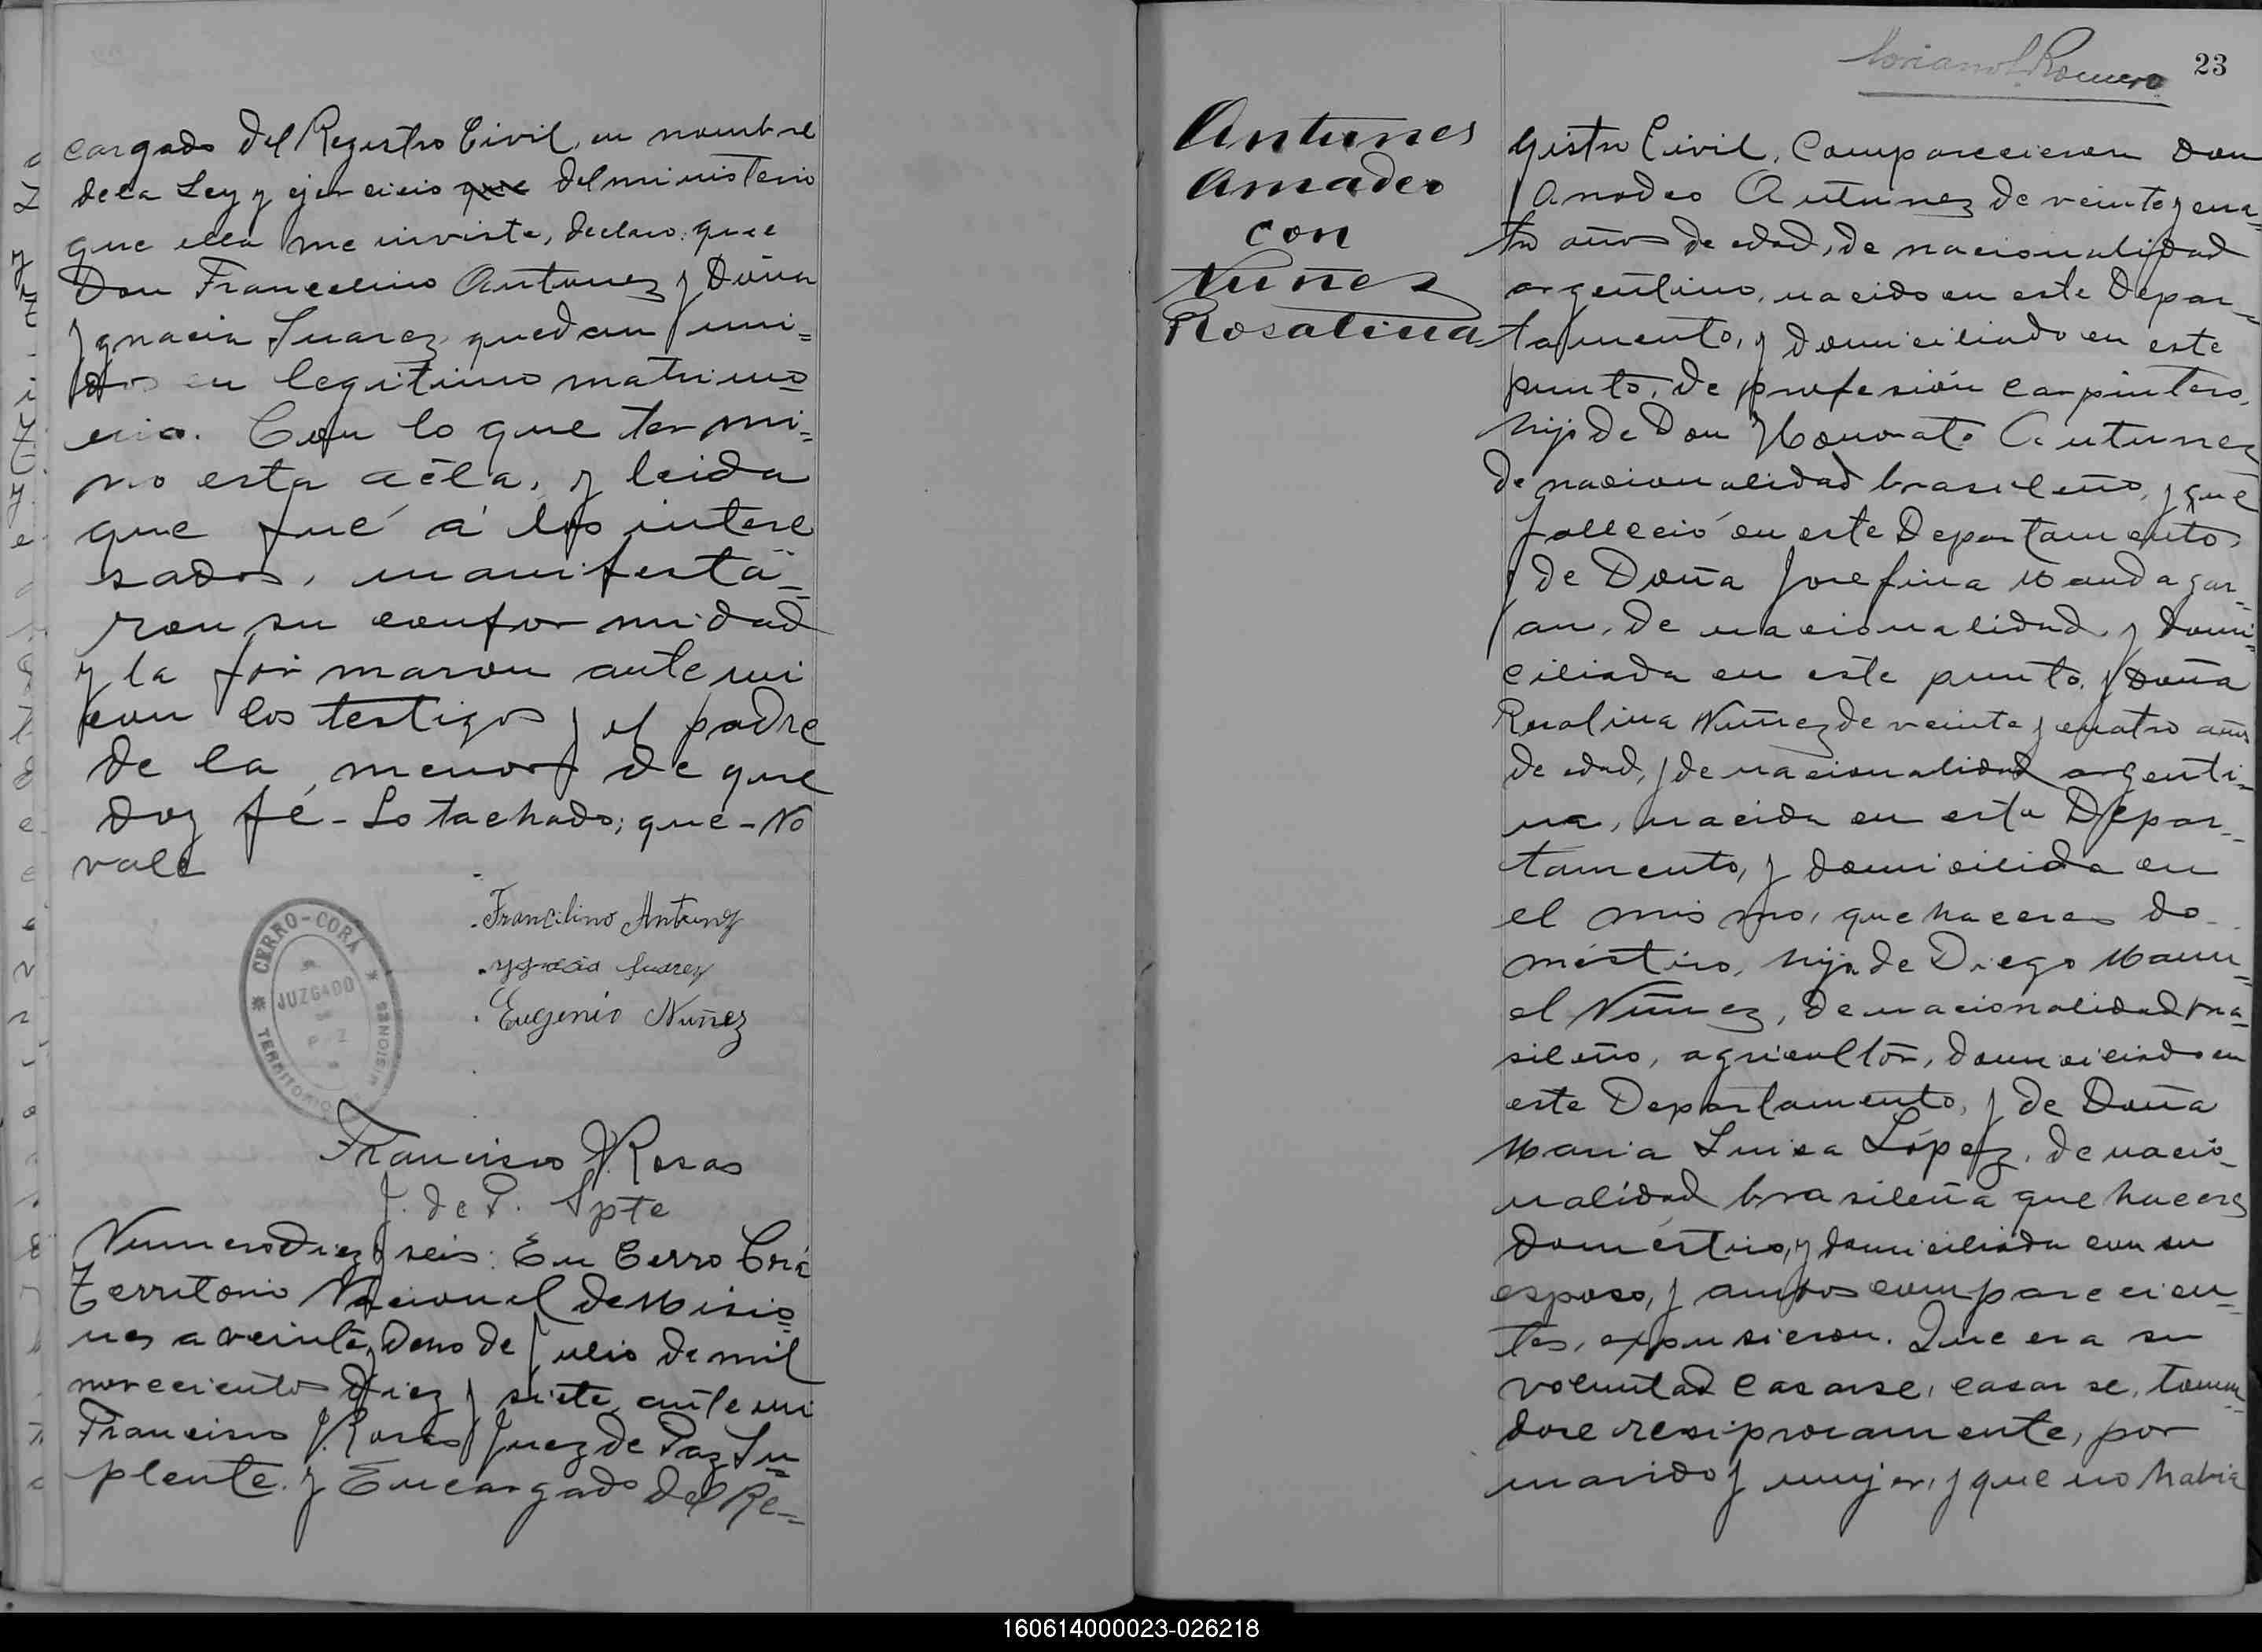 cargado del Registro Civil, en nombre
de la Ley y ejercicio que del ministerio
que ella me inviste, declaro: que
Don Francelino Antunez y Doña
Ygnacia Suarez quedan uni=
dos en legitimo matrimo=
nio. Con lo que termi=
no esta acta, y leida
que fué á los intere
sados, manifesta=
ron su conformidad
y la firmaron ante mi
con los testigos y el padre
de la menor de que
doy fé - Lo tachado; que - No
vale
Francilino Antunez
Ygnacia Suarez
Eugenio Nuñez
CERRO-CORÁ
JUZGADO
P Z
TERRITORIO MISIONES
Francisco J. Rosas
J. de P. Spte
Numero Diez y seis: En Cerro Corá
Territorio Nacional de Misio=
nes a veinte y de Julio de mil
novecientos diez y siete, ante mi
Francisco J. Rosas Juez de Paz Su=
plente y Encargado del Re=
Romero
23
Antunes
Amadeo
con
Nuñez
Rosalina
gistro Civil, Comparecieron Don
Amadeo Antunez de veinte y cua=
tro años de edad, de nacionalidad
argentino, nacido en este Depar=
tamento, y domiciliado en este
punto, de profesión carpintero,
hijo de Don Honorato Antunez
de nacionalidad brasileño, y que
falleció en este Departamento,
y de Doña Josefina Mandagar=
an, de nacionalidad y domi=
ciliada en este punto, y Doña
Rosalina Nuñez de veinte y cuatro años
de edad, y de nacionalidad argenti=
na, nacida en esta Depar=
tamento, y domicilida en
el mismo, que haceres do-
méstico, hija de Diego Manu=
el Nuñez, de nacionalidad bra=
sileño, agricultor, domiciliado en
este Departamento, y de Doña
Maria Luisa López, de nacio=
nalidad brasileña que haceres
doméstico, y domiciliada con su
esposo, y ambos comparecien=
tes, expusieron. Que era su
voluntad casarse, casar se, toman=
dose resiprocamente, por
marido y mujer, y que no habia
160614000023-026218